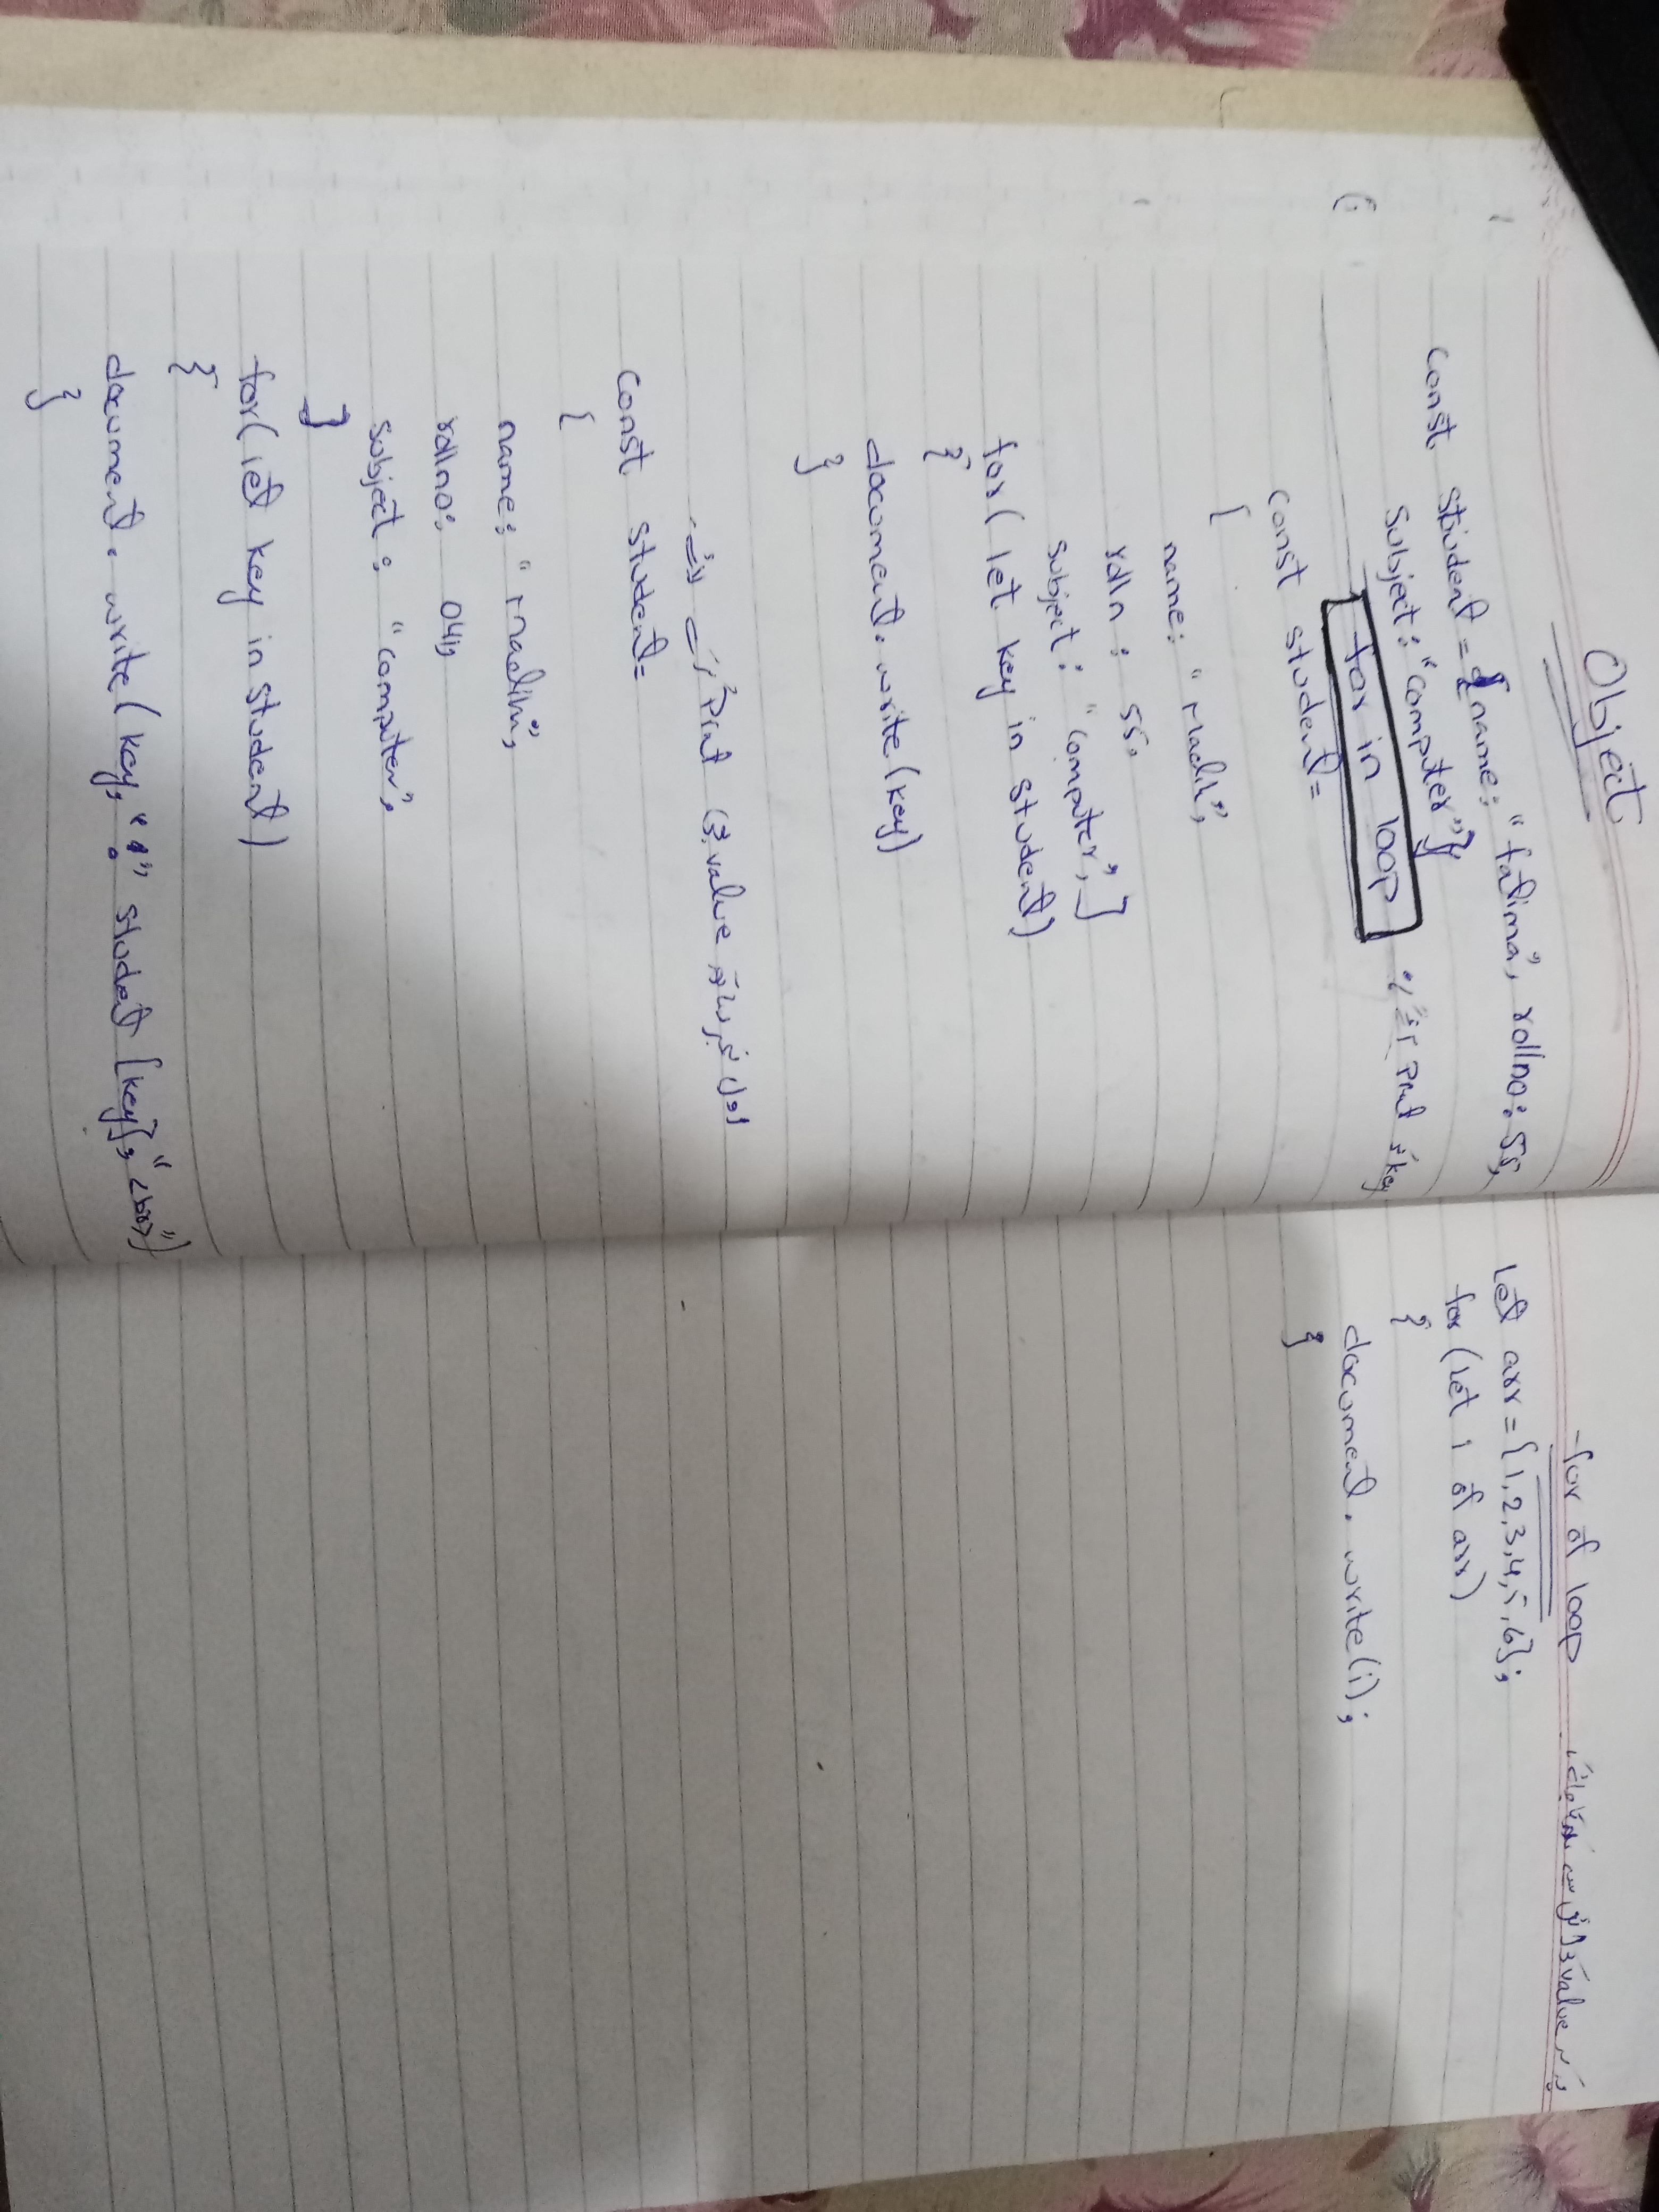 Object
const student = { name: "fatima", rollno: 55,
subject: "computer"}
for in loop
const student=
{
name:
rolln: 55,
subject: "computer", }
for( let key in student)
{
document. write (key)
}
اول نمبر ساتھ value بھی Print کرنے کے لائے
const student=
{
name:
rollno: 041,
subject: "computer",
}
for( let key in student)
{
document. write (key, ":" student [key], "<br>")
}
for of loop
Let arr = [1,2,3,4,5,6];
for (let i of arr)
{
document. write (i);
}